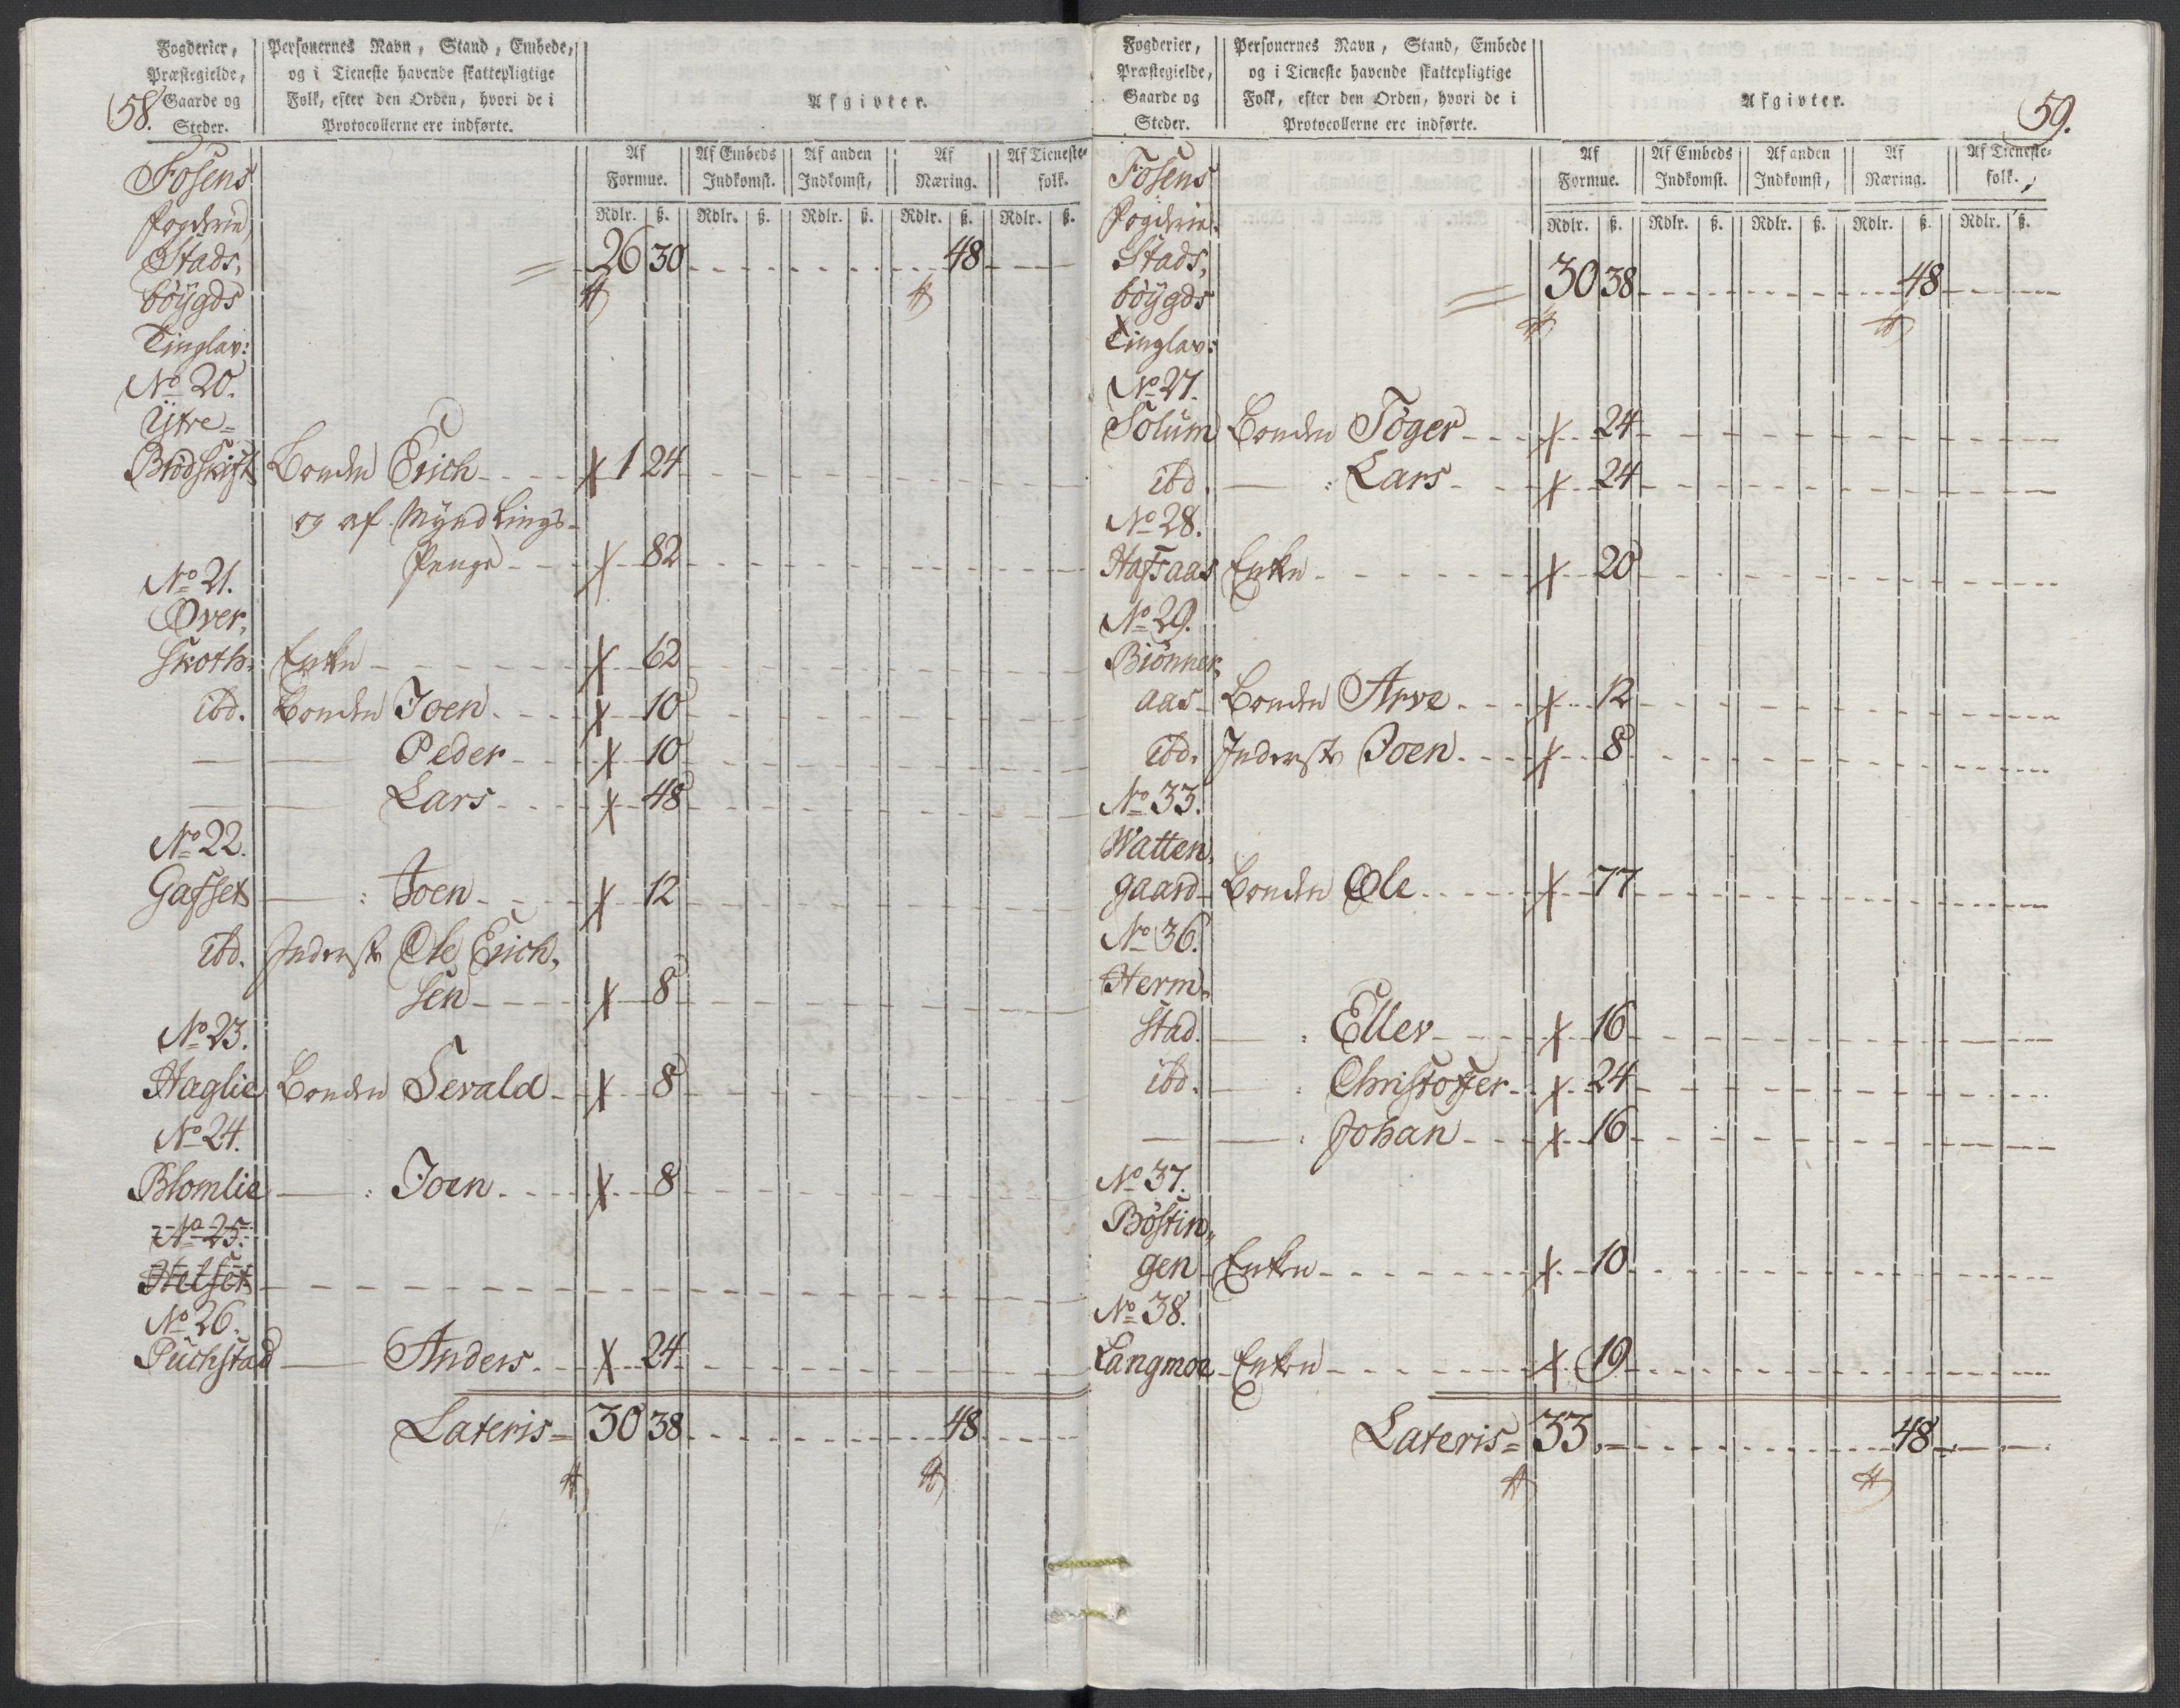 58.
Fogderier, Præstegielde, Gaarde og Steder.
Personernes Navn, Stand, Embede, og i Tieneste havende skattepligtige Folk, efter den Orden, hvori de i Protocollerne ere indførte.
Afgivter.
Af Formue. Af Embeds Indkomst. Af anden Indkomst, Af Næring. Af Tieneste-folk.
Rdlr. ß. Rdlr. ß. Rdlr. ß. Rdlr. ß. Rdlr. ß.
Fosens
Fogderie
Stads,
böygds
Tinglav:
= 26 30 48
No 20.
Ÿtre=
Brödskift Bonden Erich 1 24
og af Myndlings-
Penge 82
No 21.
Over,
Skoth: Enken 62
ibd. Bonden Joen 10
— — Peder 10
— — Lars 48
No 22.
Gafset — : Joen 12
ibd. Inderste Ole Erich,
sen 8
No 23.
Haglie Bonden Sevald 8
No 24.
Blomlie — : Joen 8
No 25.
Helset
No 26.
Puchstad — Anders 24
Lateris = 30 38 48
59.
Fogderier, Præstegielde, Gaarde og Steder.
Personernes Navn, Stand, Embede og i Tieneste havende skattepligtige Folk, efter den Orden, hvori de i Protocollerne ere indførte.
Afgivter.
Af Formue. Af Embeds Indkomst. Af anden Indkomst, Af Næring. Af Tieneste-folk.
Rdlr. ß. Rdlr. ß. Rdlr. ß. Rdlr. ß. Rdlr. ß.
Fosens
Fogderie
Stads,
böygds
Tinglav:
= 30 38 48
No 27.
Solum Bonden Töger 24
ibd. — : Lars 24
No 28.
Hafsaas Enken 20
No 29.
Biönner,
aas Bonden Arve 12
ibd. Inderste Joen 8
No 33.
Watten,
gaard Bonden Ole 77
No 36.
Herm,
stad — : Eller 16
ibd. — : Christoffer 24
— — : Johan 16
No 37.
Böstin,,
gen Enken 10
No 38.
Langmoe Enken 19
Lateris = 33 = 48